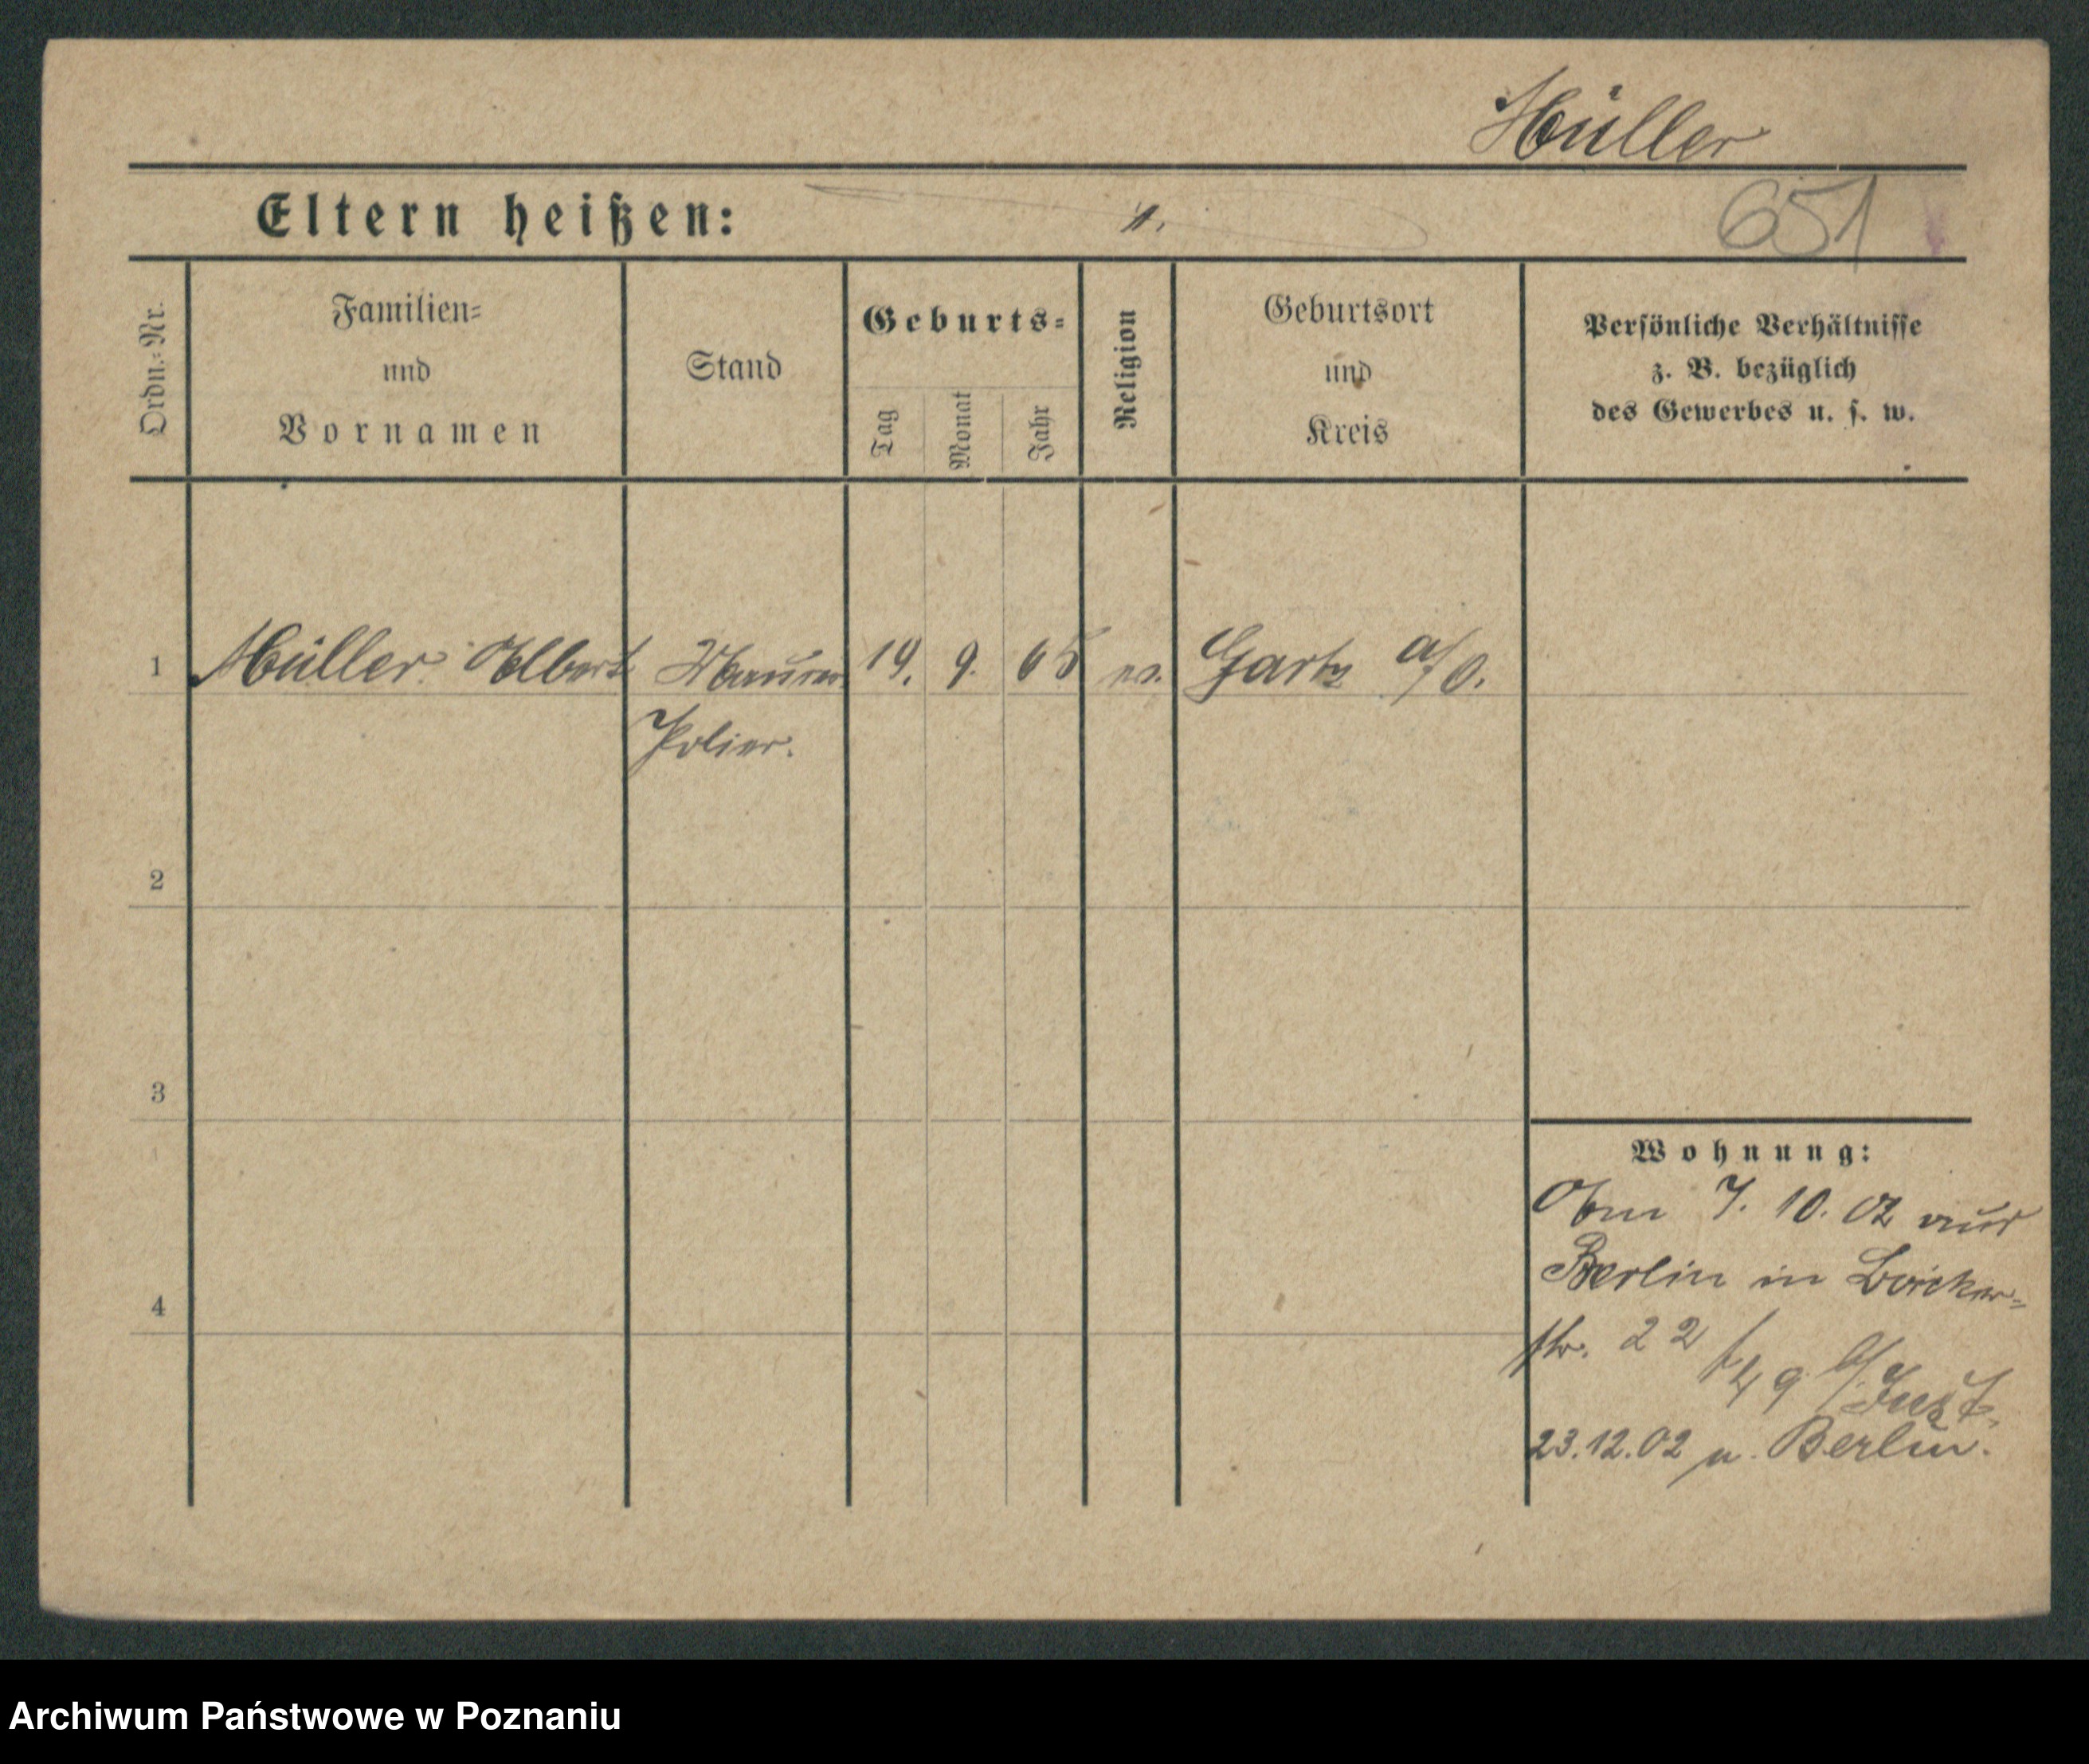 Müller
Eltern heißen:
651
Ordn.=Nr.
Familien=
und
Vornamen
Stand
Geburts=
Tag
Monat
Jahr
Religion
Geburtsort
und
Kreis
Persönliche Verhältnisse
z. B. bezüglich
des Gewerbes u. s. w.
1 Müller Albert Maurer 19. 9. 65 ev. Gartz a/O.
Polier.
2
3
4
Wohnung:
Am 7. 10. 02 aus
Berlin in Bäcker=
str. 22
23.12.02 n. Berlin.
Archiwum Państwowe w Poznaniu